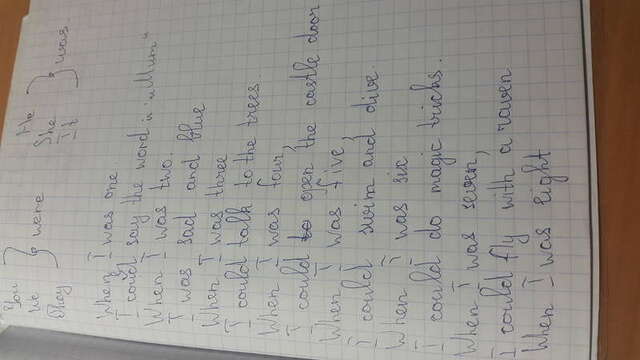 You
We
They
} were
He
She
It
} was.
When I was one.
I could say the word "Mum"
When I was two.
I was sad and blue
When I was three
I could talk to the trees.
When I was four,
I could to open the castle door
When I was five,
I could swim and dive.
When I was six
I could do magic tricks.
When I was seven,
I could fly with a raven
When I was eight